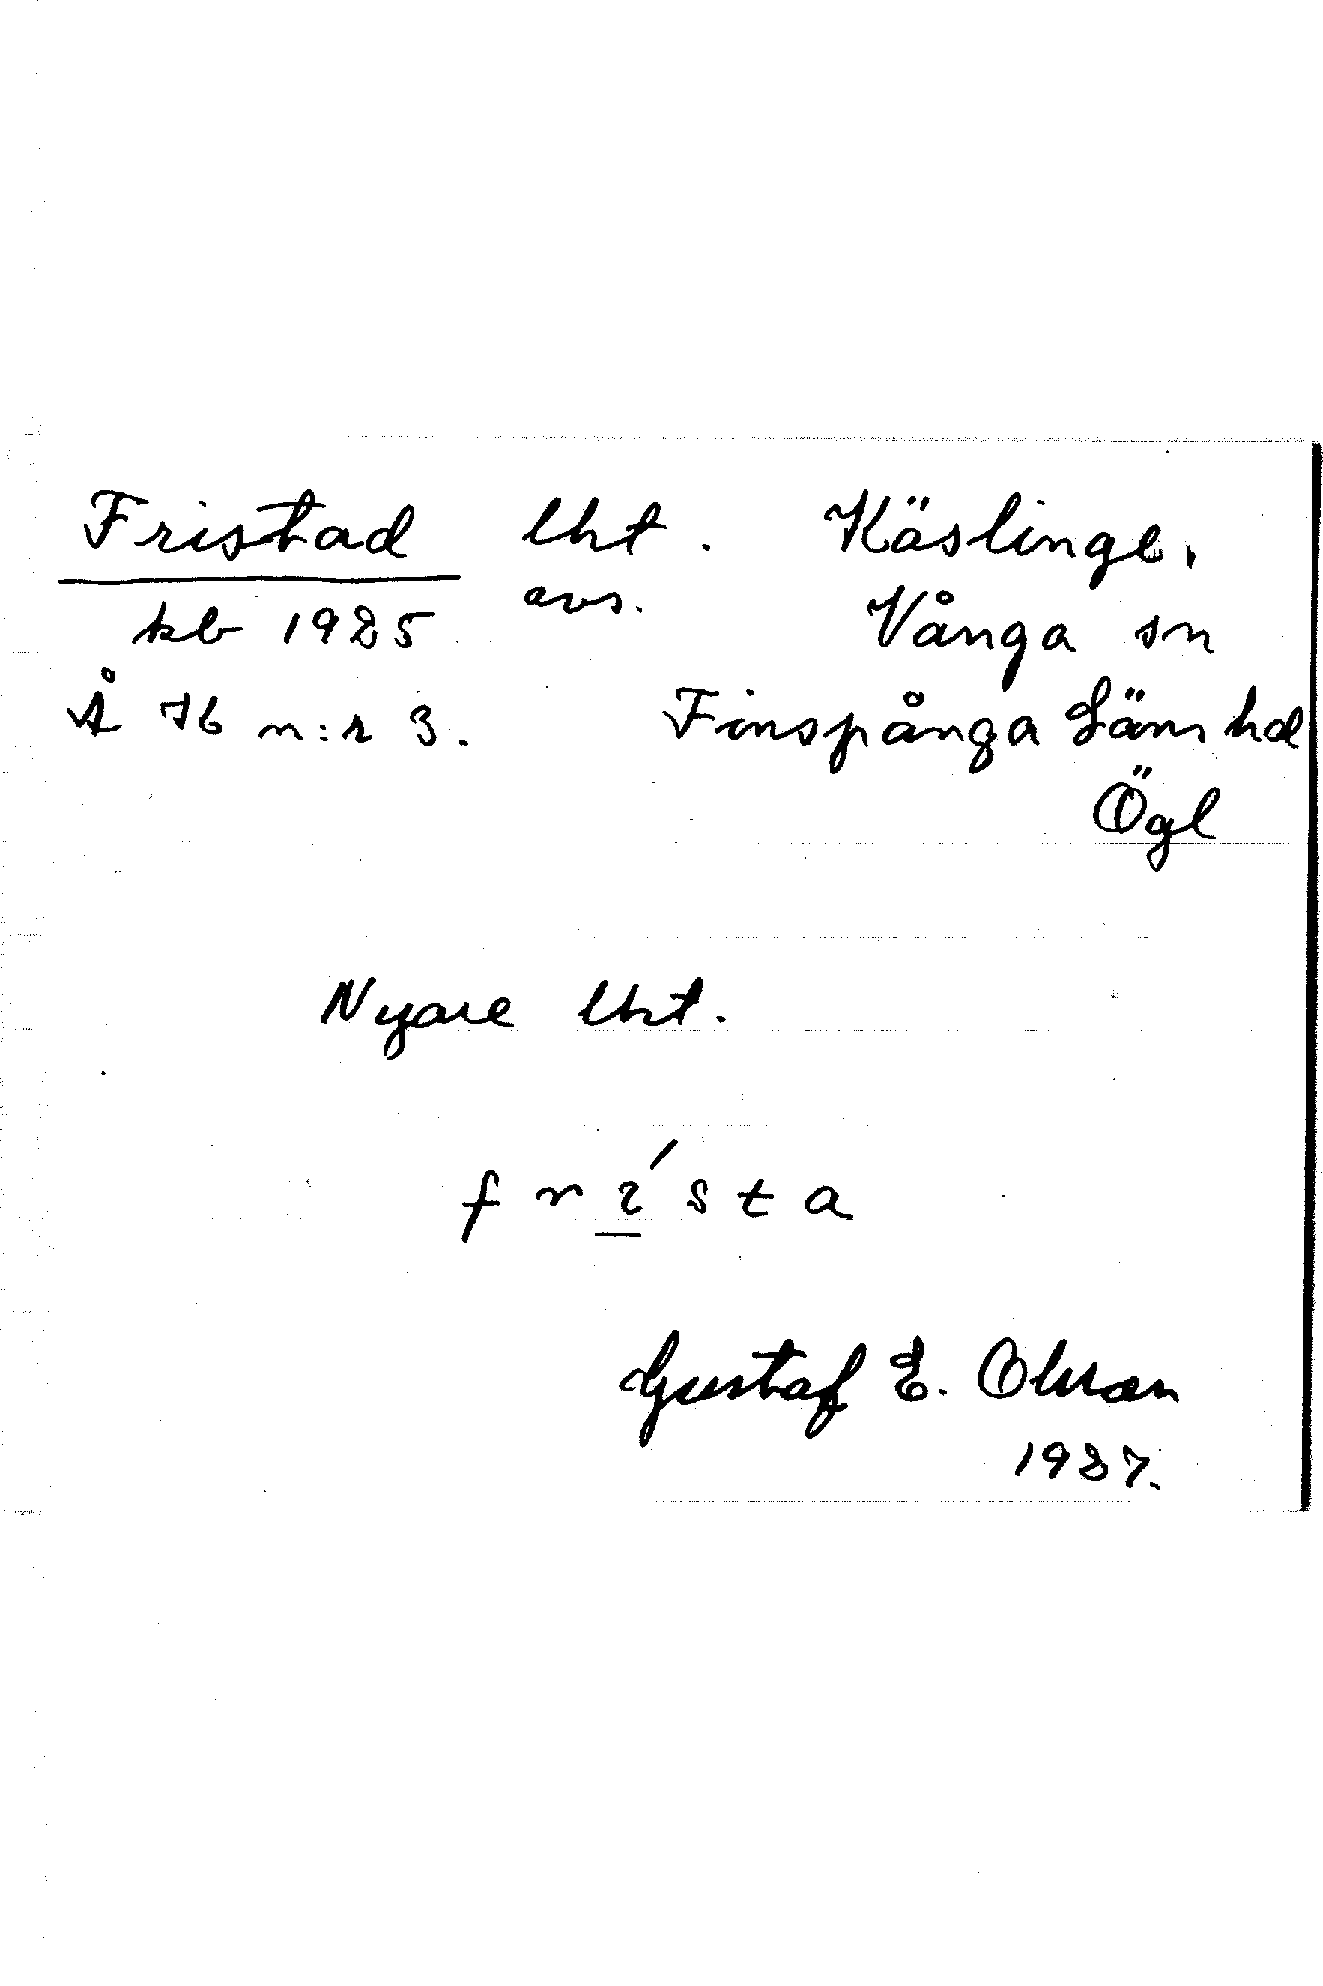 Fristad lht. Käslinge,
avs.
kb 1925 Vånga sn
Å 76 n:r 3. Finspånga Läns hd
Ögl
Nyare lht.
frísta
Gustaf E. Olsson
1937.